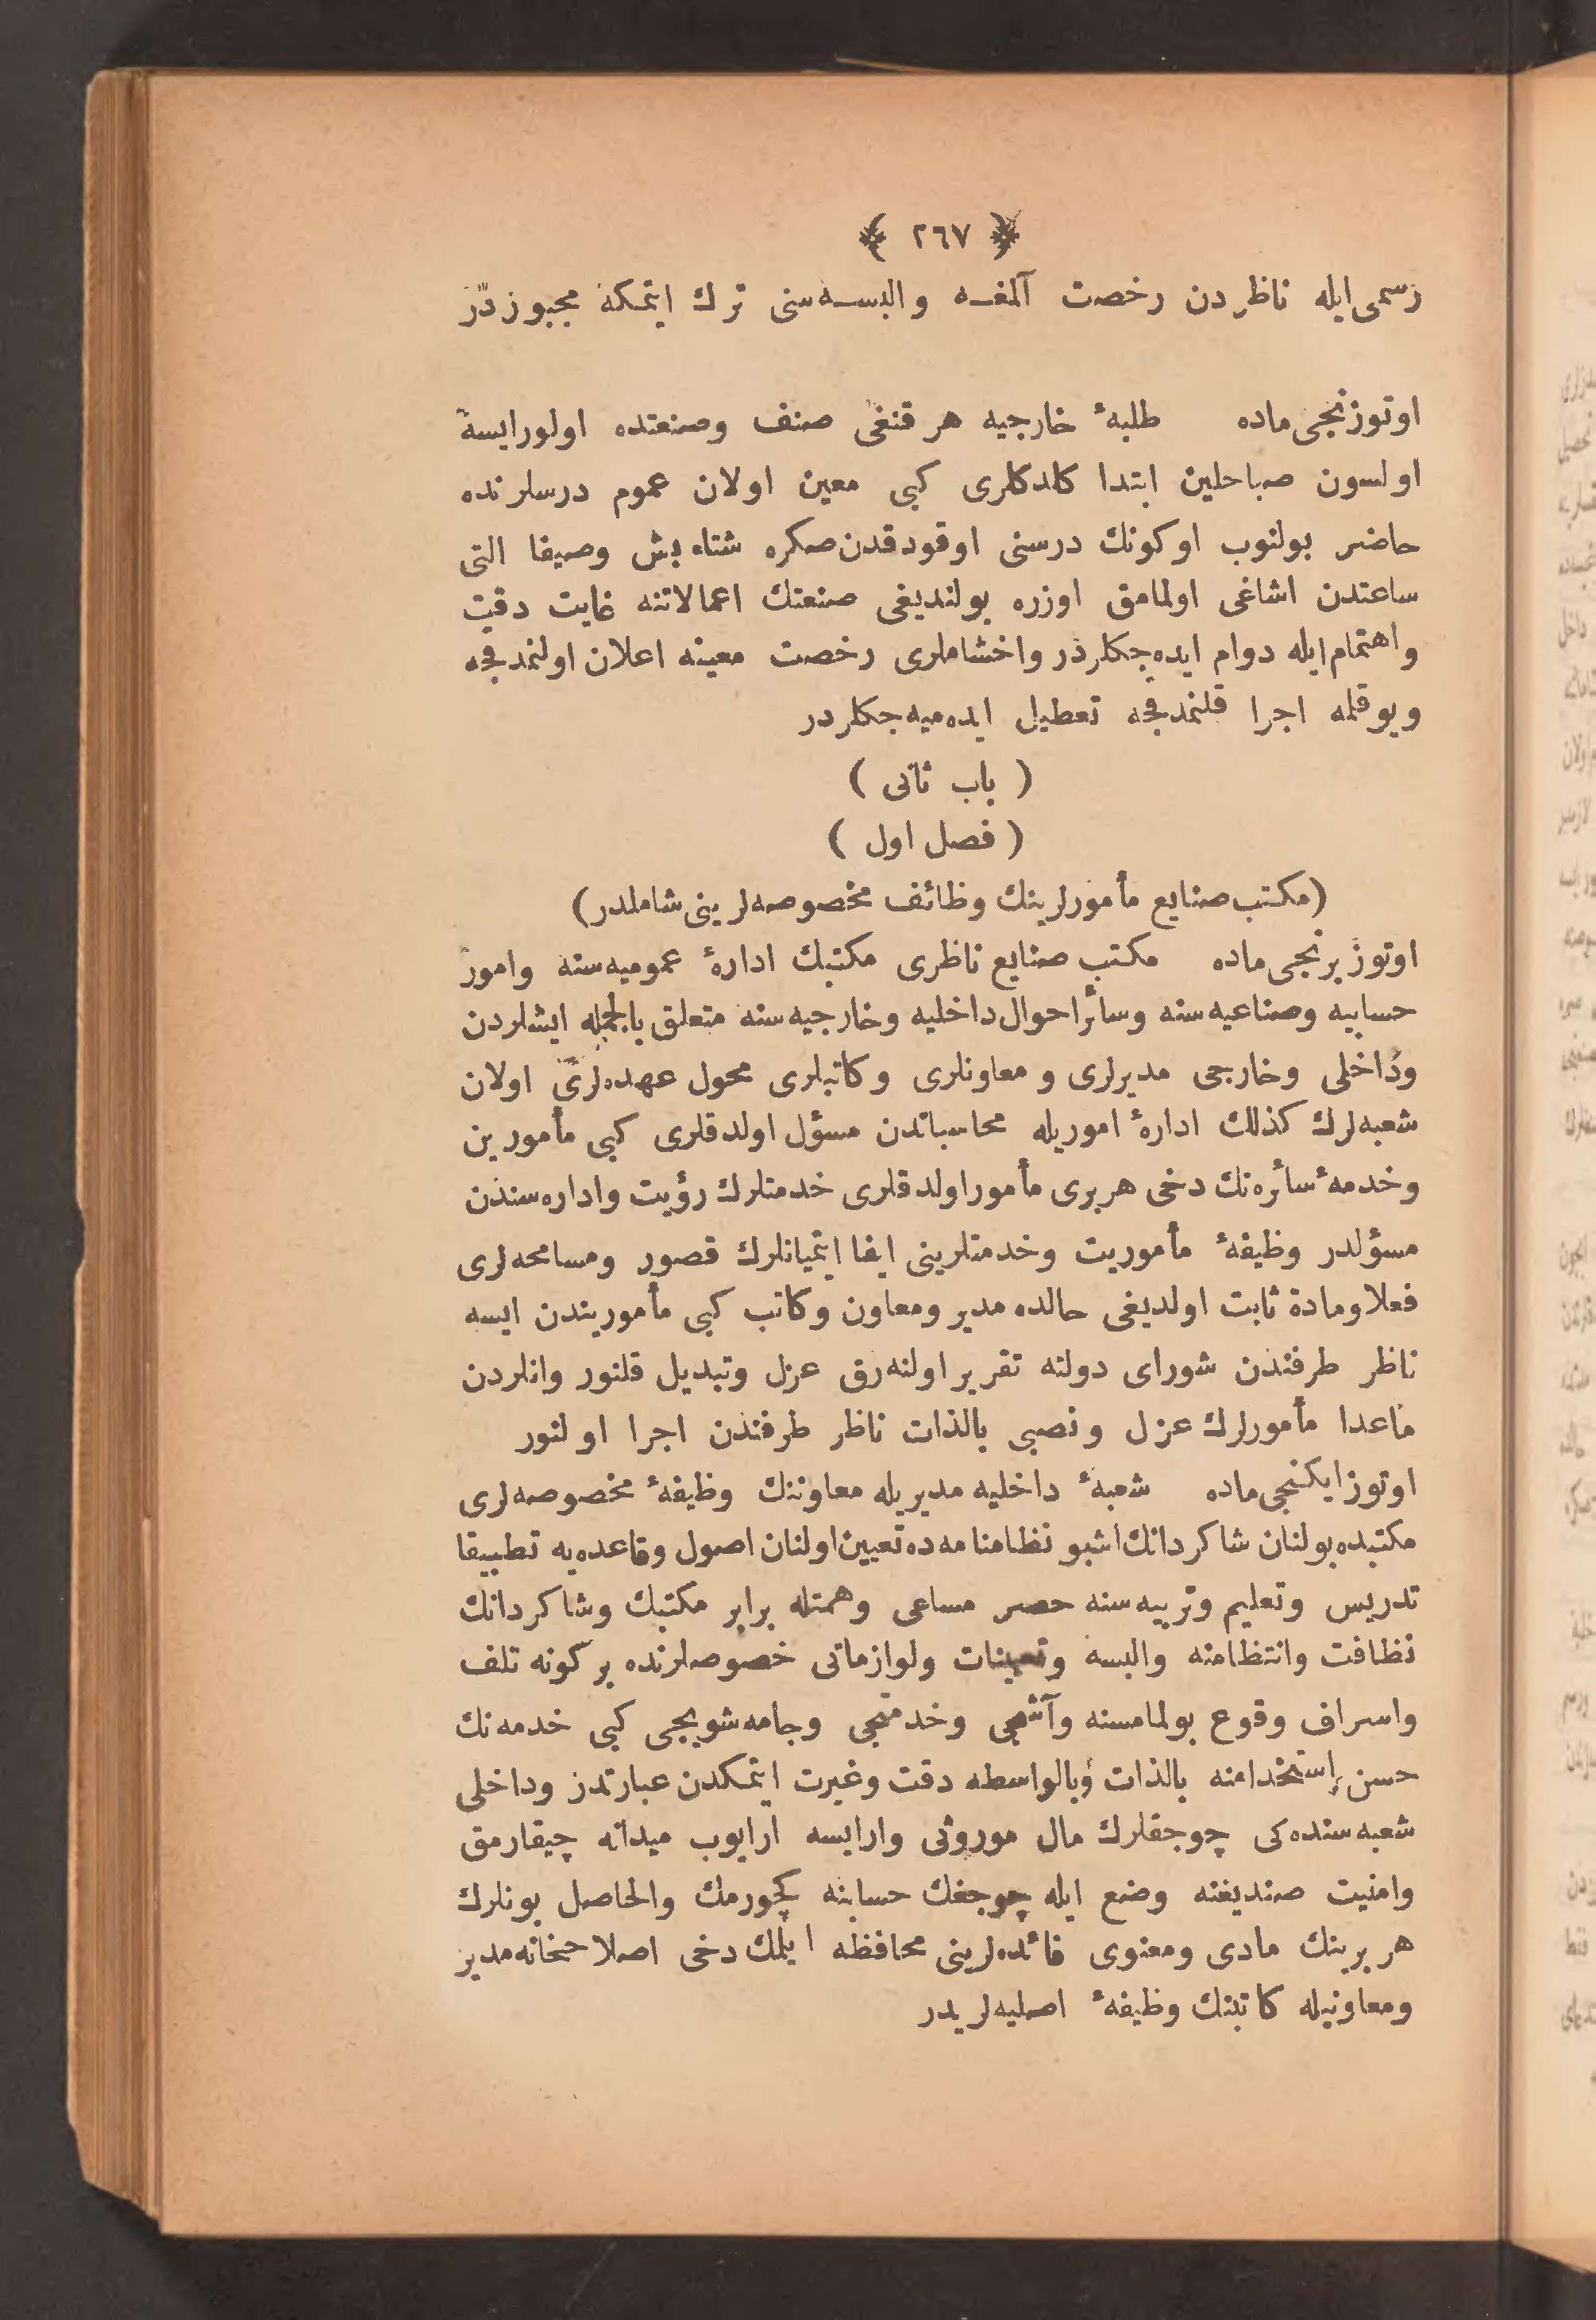 ﴿ ٢٦٧ ﴾
رسمى ايله ناظردن رخصت آلمغه والبسه‌سنى ترك ايتمكه مجبوردر
اوتوزنجى ماده طلبهٔ خارجيه هر قنغى صنف وصنعتده اولورايسه
اولسون صباحلين ابتدا كلدكلرى كبى معين اولان عموم درسلرنده
حاضر بولنوب اوكونك درسنى اوقودقدن صكره شتاء بش وصيفا التى
ساعتدن اشاغى اولمامق اوزره بولنديغى صنعتك اعمالاتنه غايت دقت
واهتمام ايله دوام ايده‌جكلردر واخشاملرى رخصت معينه اعلان اولنمدقجه
ويوقلمه اجرا قلنمدقجه تعطيل ايده‌ميه‌جكلردر
( باب ثانى )
( فصل اول )
(مكتب صنايع مأمورلرينك وظائف مخصوصه‌لرينى شاملدر)
اوتوز برنجى ماده مكتب صنايع ناظرى مكتبك ادارهٔ عموميه‌سنه وامور
حسابيه وصناعيه‌سنه وسائر احوال داخليه وخارجيه‌سنه متعلق بالجمله ايشلردن
وداخلى وخارجى مديرلرى و معاونلرى وكاتبلرى محول عهده‌لرى اولان
شعبه‌لرك كذلك ادارهٔ اموريله محاسباتدن مسؤل اولدقلرى كبى مأمورين
وخدمهٔ سائره‌نك دخى هربرى مأمور اولدقلرى خدمتلرك رؤيت واداره‌سندن
مسؤلدر وظيفهٔ مأموريت وخدمتلرينى ايفا ايتميانلرك قصور ومسامحه‌لرى
فعلا ومادة ثابت اولديغى حالده مدير ومعاون وكاتب كبى مأموريندن ايسه
ناظر طرفندن شوراى دولته تقرير اولنه‌رق عزل وتبديل قلنور وانلردن
ماعدا مأمورلرك عزل ونصبى بالذات ناظر طرفندن اجرا اولنور
اوتوز ايكنجى ماده شعبهٔ داخليه مديريله معاوننك وظيفهٔ مخصوصه‌لرى
مكتبده بولنان شاكردانك اشبو نظامنامه‌ده تعيين اولنان اصول وقاعده‌يه تطبيقا
تدريس وتعليم وتربيه‌سنه حصر مساعى وهمتله برابر مكتبك وشاكردانك
نظافت وانتظامنه والبسه وتعيينات ولوازماتى خصوصلرنده بركونه تلف
واسراف وقوع بولمامسنه وآشجى وخدمتجى وجامه‌شويجى كبى خدمه‌نك
حسن إستخدامنه بالذات وبالواسطه دقت وغيرت ايتمكدن عبارتدر وداخلى
شعبه‌سنده‌كى چوجقلرك مال موروثى وارايسه ارايوب ميدانه چيقارمق
وامنيت صنديغنه وضع ايله چوجغك حسابنه كچورمك والحاصل بونلرك
هر برينك مادى ومعنوى فائده‌لرينى محافظه ايلمك دخى اصلاحخانه مدير
ومعاونيله كاتبنك وظيفهٔ اصليه‌لريدر